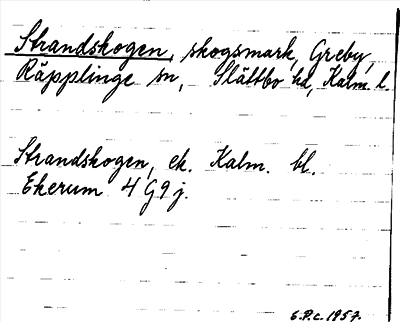 Strandskogen, skogsmark, Greby,
Räpplinge sn, Slättbo hd, Kalm. l.
Strandskogen, ek. Kalm. bl.
Ekerum 4G9j.
E.P.c. 1957.